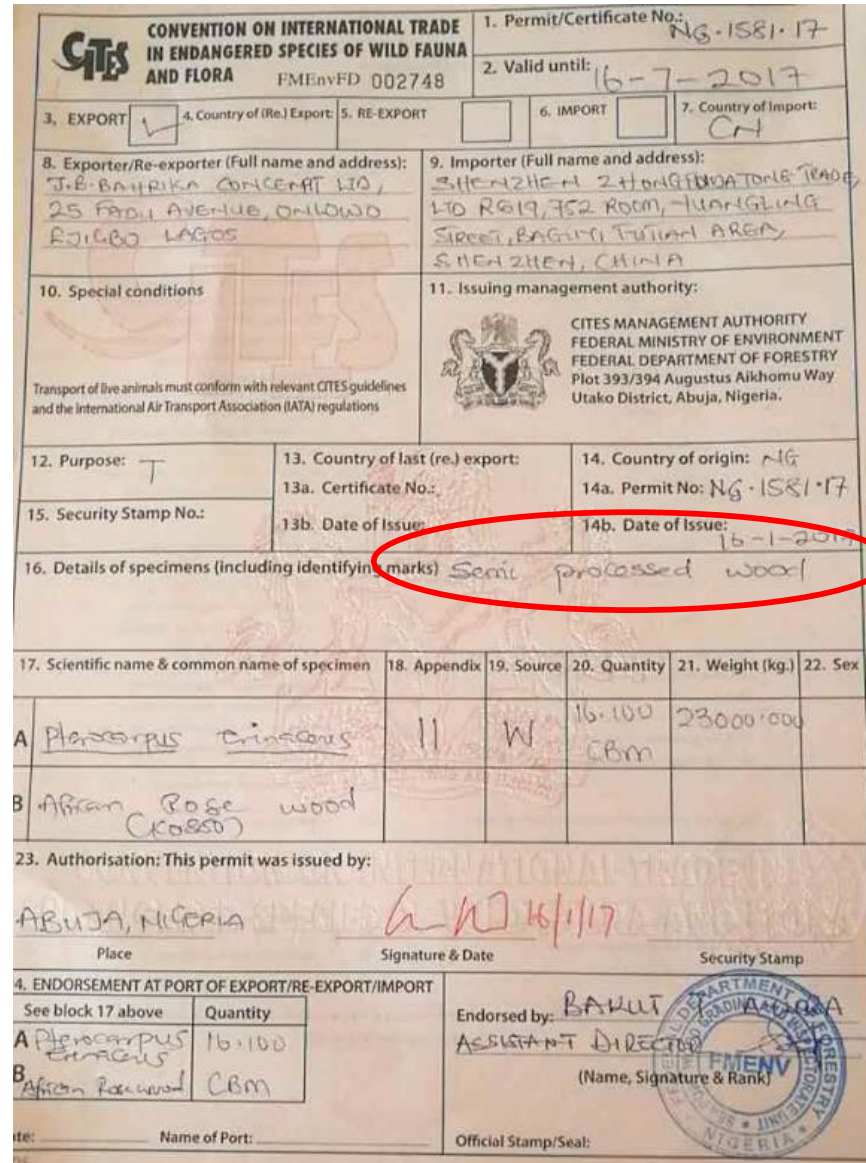 CITES
CONVENTION ON INTERNATIONAL TRADE
IN ENDANGERED SPECIES OF WILD FAUNA
AND FLORA
FMEnvFD 002748
1. Permit/Certificate No.: NG·1581·17
2. Valid until: 16-7-2017
3. EXPORT
4. Country of (Re.) Export:
5. RE-EXPORT
6. IMPORT
7. Country of Import:
CN
8. Exporter/Re-exporter (Full name and address):
J.B. BAHRIKA CONCERPT LTD,
25 FADU AVENUE, ONILOWO
EJIGBO LAGOS
9. Importer (Full name and address):
SHENZHEN TRADE
LTD RG19, 752 ROOM,
STREET, AREA,
SHENZHEN, CHINA
10. Special conditions
Transport of live animals must conform with relevant CITES guidelines
and the International Air Transport Association (IATA) regulations
11. Issuing management authority:
CITES MANAGEMENT AUTHORITY
FEDERAL MINISTRY OF ENVIRONMENT
FEDERAL DEPARTMENT OF FORESTRY
Plot 393/394 Augustus Aikhomu Way
Utako District, Abuja, Nigeria.
12. Purpose: T
13. Country of last (re.) export:
13a. Certificate No.:
13b. Date of Issue:
14. Country of origin: NG
14a. Permit No: NG·1581·17
14b. Date of Issue:
16-1-2017
15. Security Stamp No.:
16. Details of specimens (including identifying marks) Semi processed wood
17. Scientific name & common name of specimen
18. Appendix
19. Source
20. Quantity
21. Weight (kg.)
22. Sex
A Pterocarpus erinaceus
II
W
16.100
CBM
23000.000
B African Rose wood
(KOSSO)
23. Authorisation: This permit was issued by:
ABUJA, NIGERIA
16/1/17
Place
Signature & Date
Security Stamp
4. ENDORSEMENT AT PORT OF EXPORT/RE-EXPORT/IMPORT
See block 17 above
Quantity
A Pterocarpus
erinaceus
16.100
B African Rosewood
CBM
Endorsed by: BAKUT
ASSISTANT DIRECTOR
(Name, Signature & Rank)
Name of Port:
Official Stamp/Seal:
FEDERAL DEPARTMENT OF FORESTRY
FMENV
NIGERIA